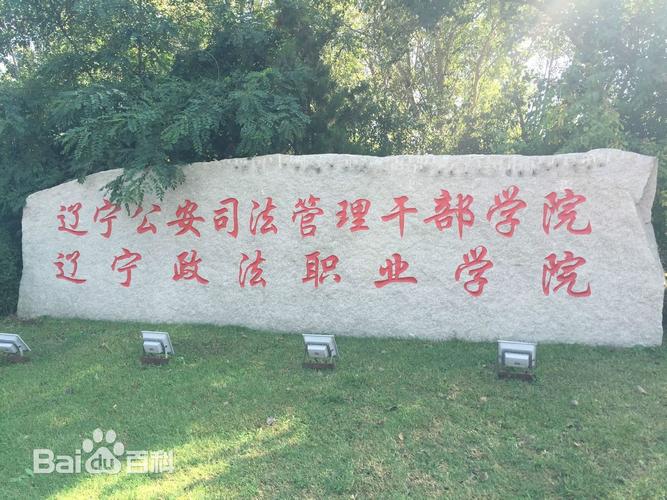 辽宁公安司法管理干部学院
辽宁政法职业学院
Bai du 百科